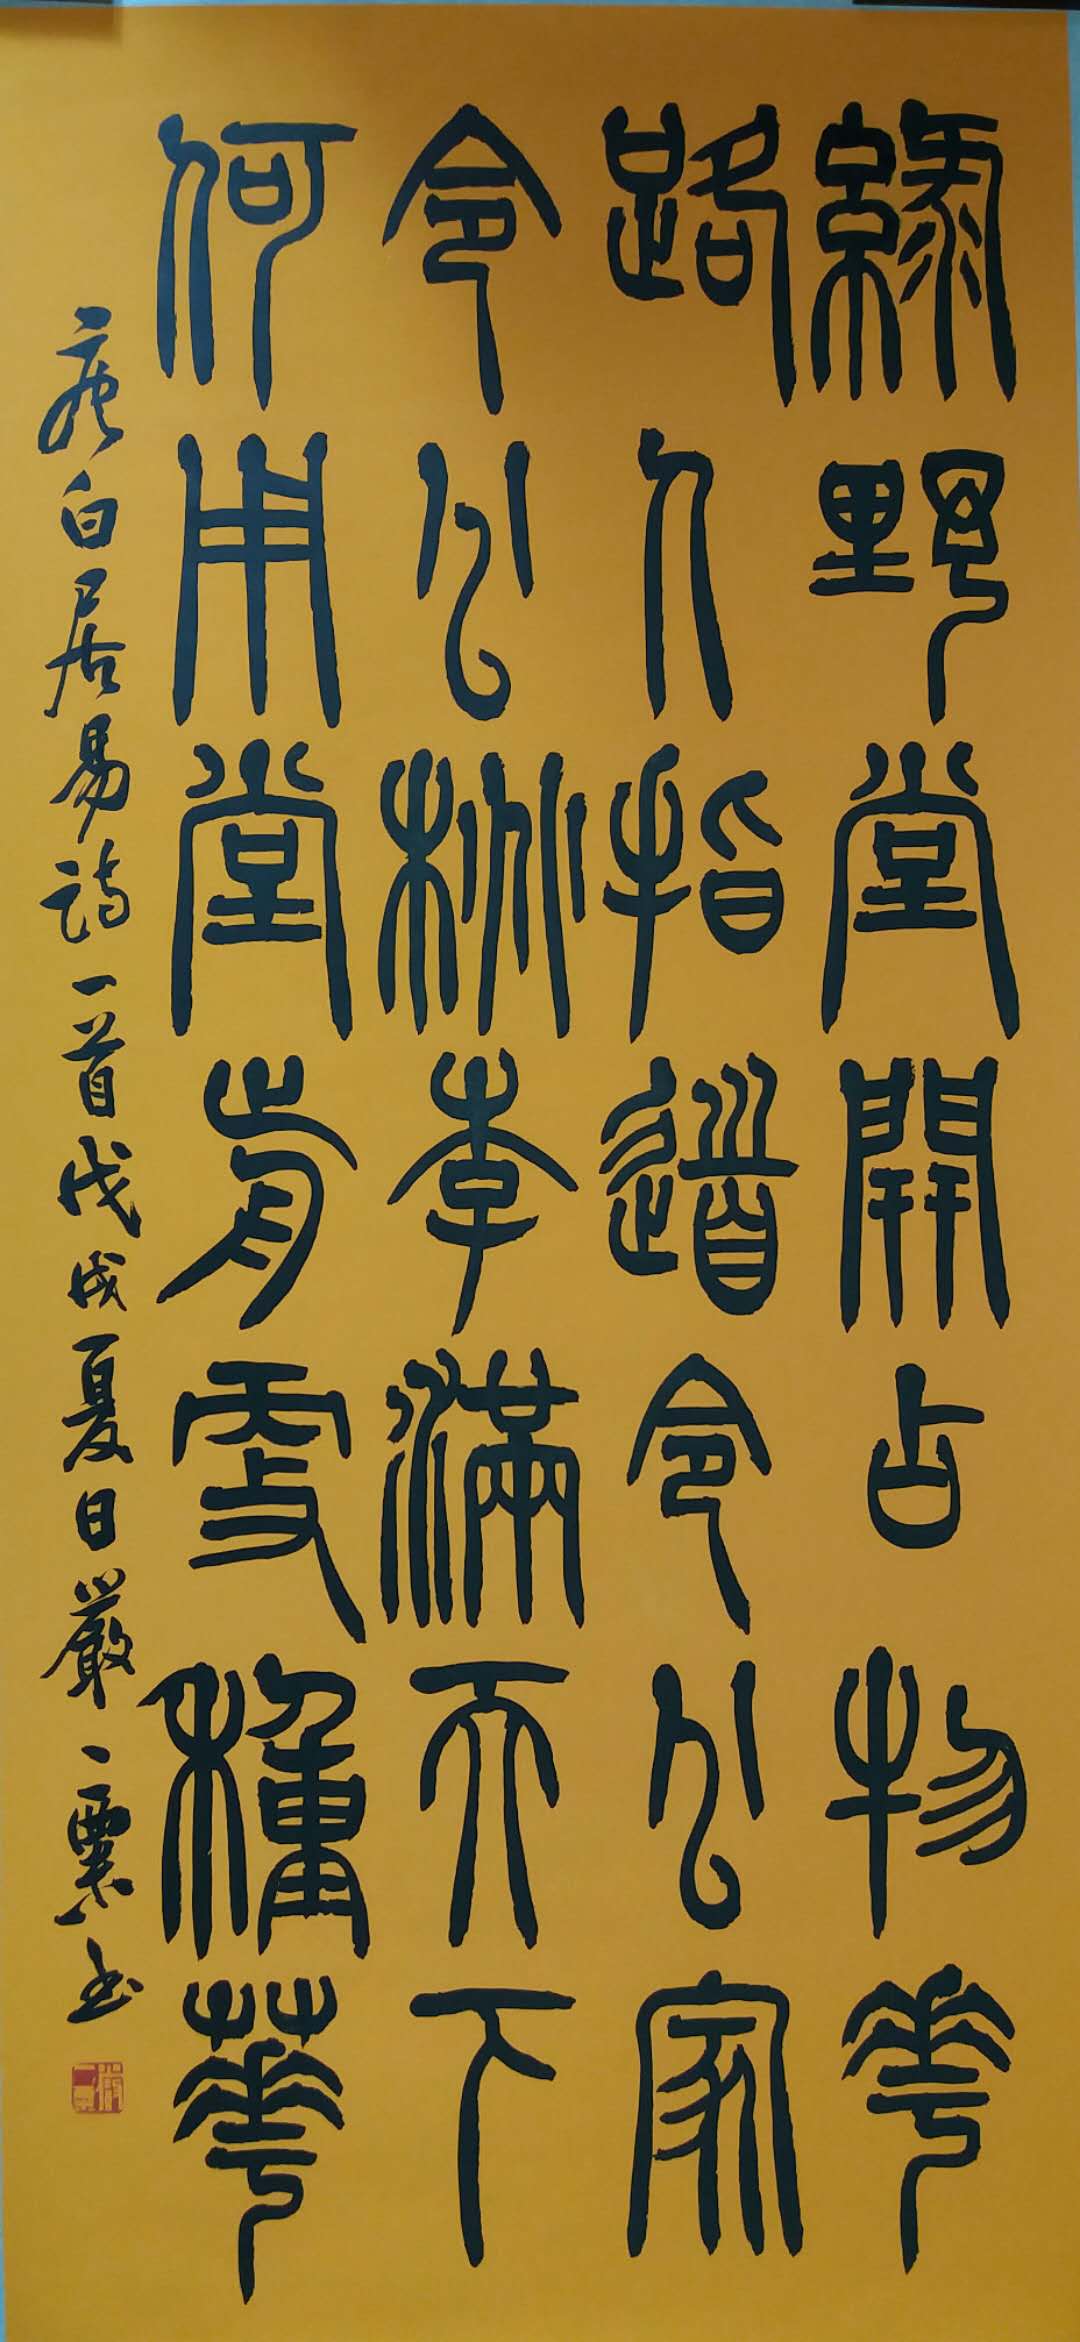 綠野堂開占物華
路人指道令公家
令公桃李滿天下
何用堂前更種華
唐白居易詩一首戊戌夏日嚴一粟书